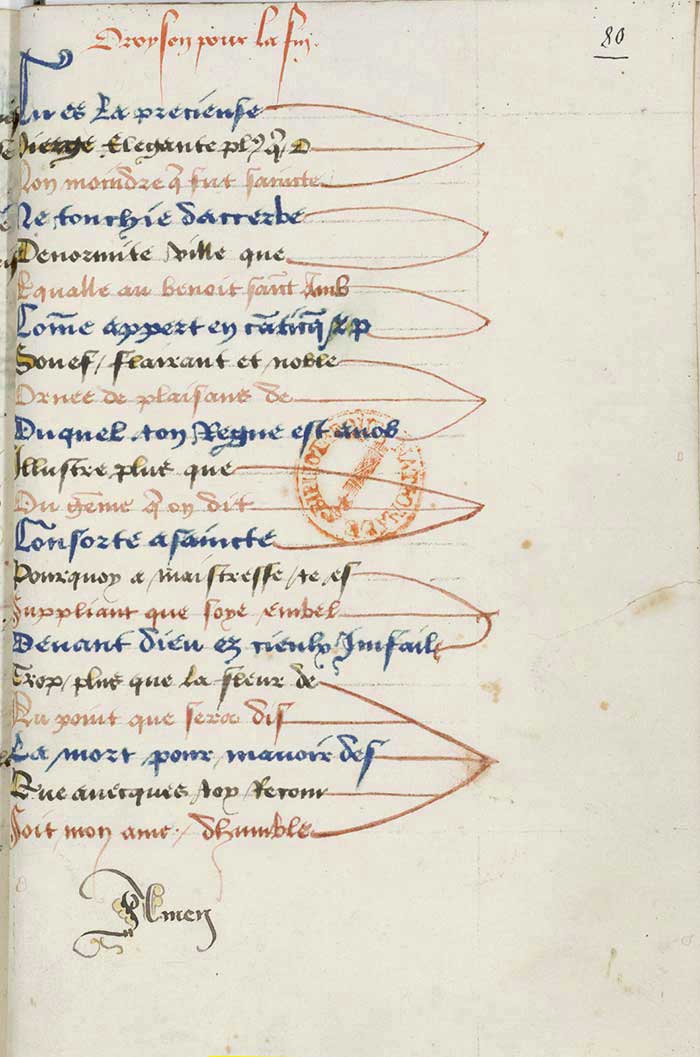 Oroyson pour la fin.
80
Tu es La precieuse
Vierge Elegante pl9 q̃ D
Non moindre q̃ fut saincte
Ne touchie daccerbe
Denormite ville que
Equalle au benoit sainct Amb
Com̃e appert en
Souef / flairant et noble
Ornee de plaisans de
Duquel ton Regne est anob
Illustre plus que
Du gem̃e q̃ on dit
Consorte a saincte
Pourquoy a maistresse / te es
Suppliant que soye embel
Devant dieu ez cieulx Imfail
Trop / plus que la fleur de
Au point que sera dis
La mort pour manoir des
Que avecques toy Recour
Soit mon ame / dhumble
Amen